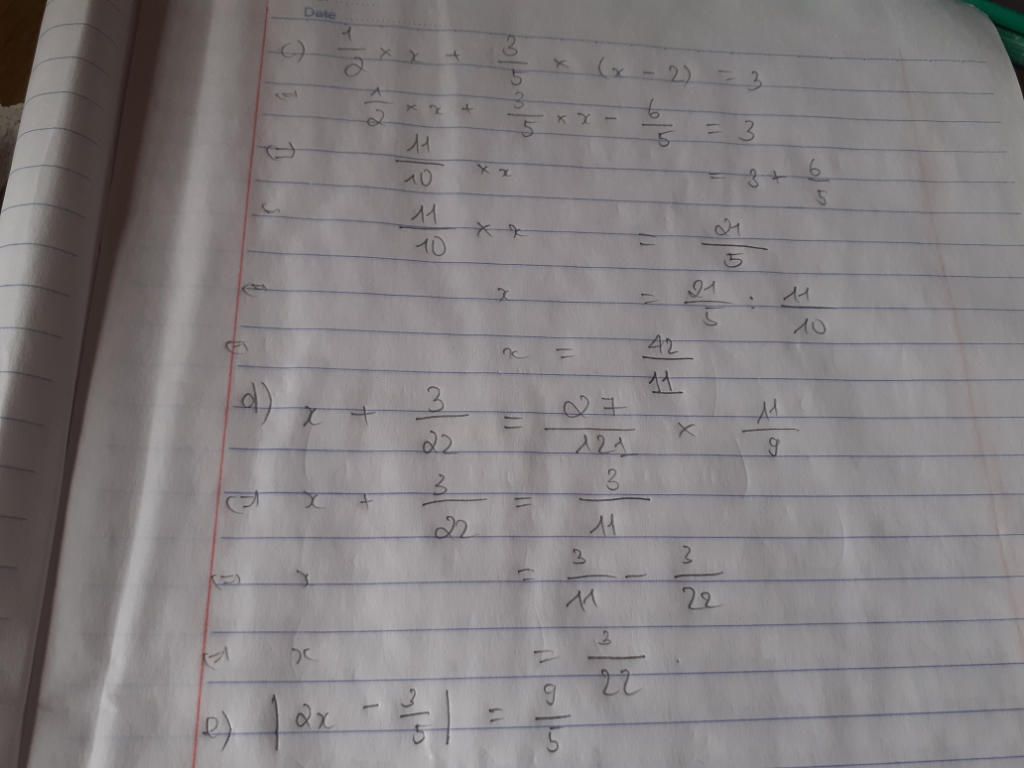 Date
c) 1/2 × x + 3/5 × (x - 2) = 3
⇔ 1/2 × x + 3/5 × x - 6/5 = 3
⇔ 11/10 × x = 3 + 6/5
⇔ 11/10 × x = 21/5
⇔ x = 21/5 : 11/10
⇔ x = 42/11
d) x + 3/22 = 27/121 × 11/9
⇔ x + 3/22 = 3/11
⇔ x = 3/11 - 3/22
⇔ x = 3/22.
e) |2x - 3/5| = 9/5